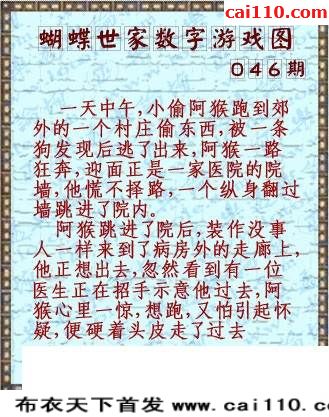 cai110.com
蝴蝶世家数字游戏图
046期
一天中午,小偷阿猴跑到郊
外的一个村庄偷东西,被一条
狗发现后逃了出来,阿猴一路
狂奔,迎面正是一家医院的院
墙,他慌不择路,一个纵身翻过
墙跳进了院内。
阿猴跳进了院后,装作没事
人一样来到了病房外的走廊上,
他正想出去,忽然看到有一位
医生正在招手示意他过去,阿
猴心里一惊,想跑,又怕引起怀
疑,便硬着头皮走了过去
布衣天下首发 www.cai110.c